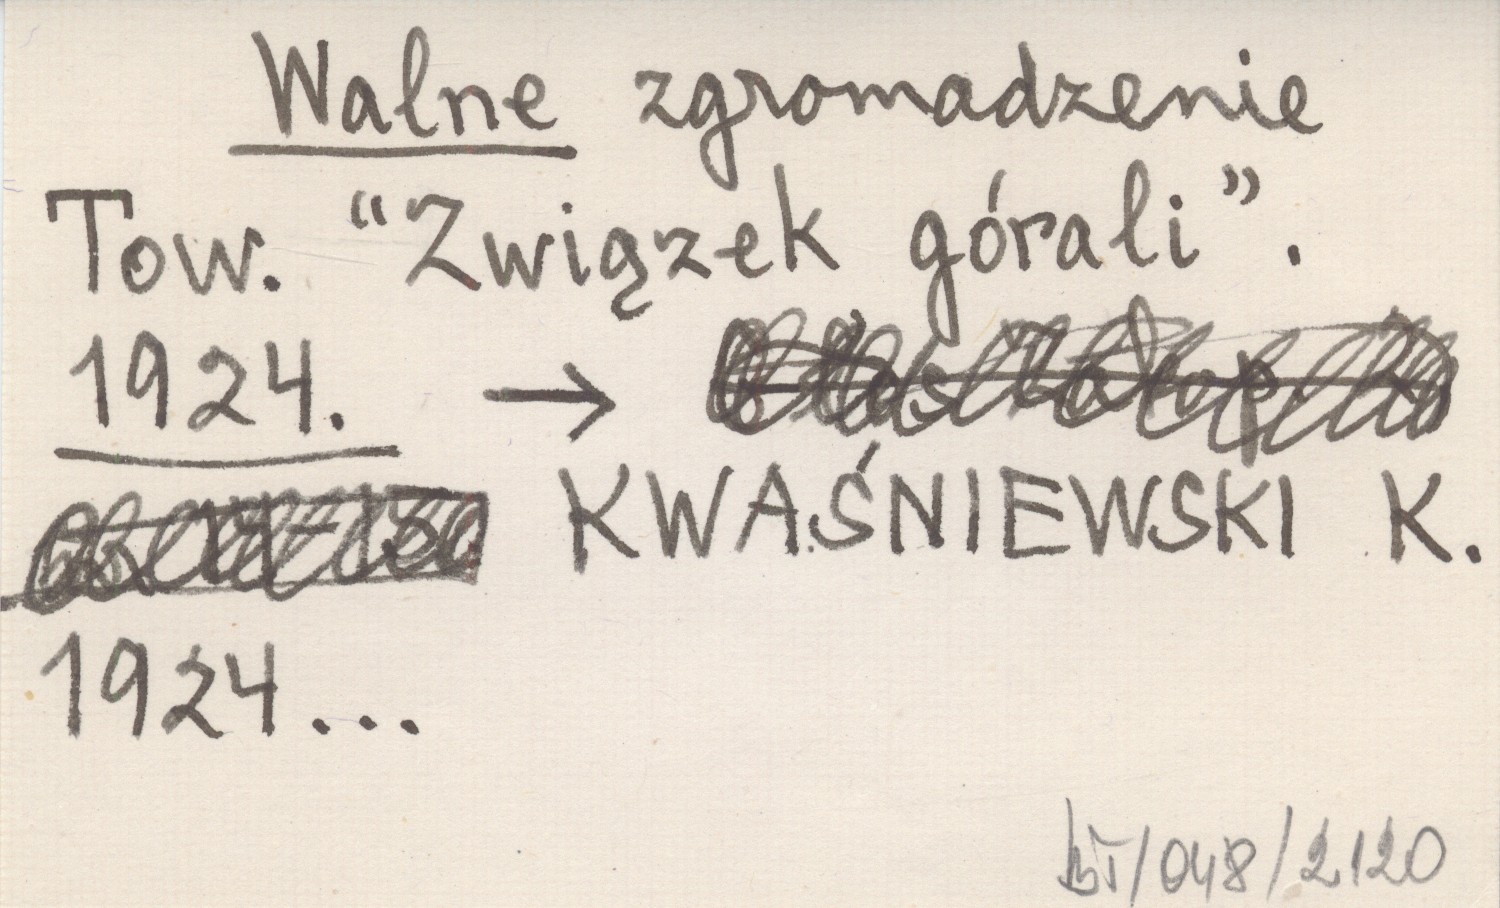 Walne zgromadzenie
Tow. “Związek górali”.
1924. →
KWAŚNIEWSKI K.
1924...
bT/048/2120